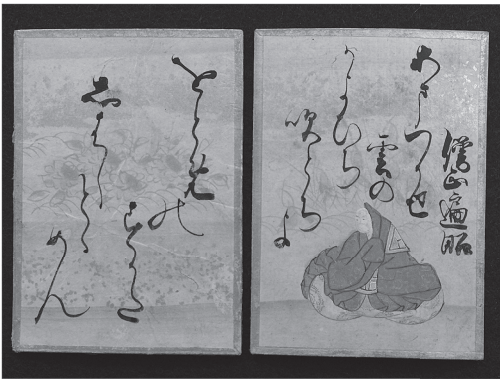 僧正遍昭
あまつかせ
雲の
かよひち
吹とちよ
をとめの
すかた
しはしとゝ
めん